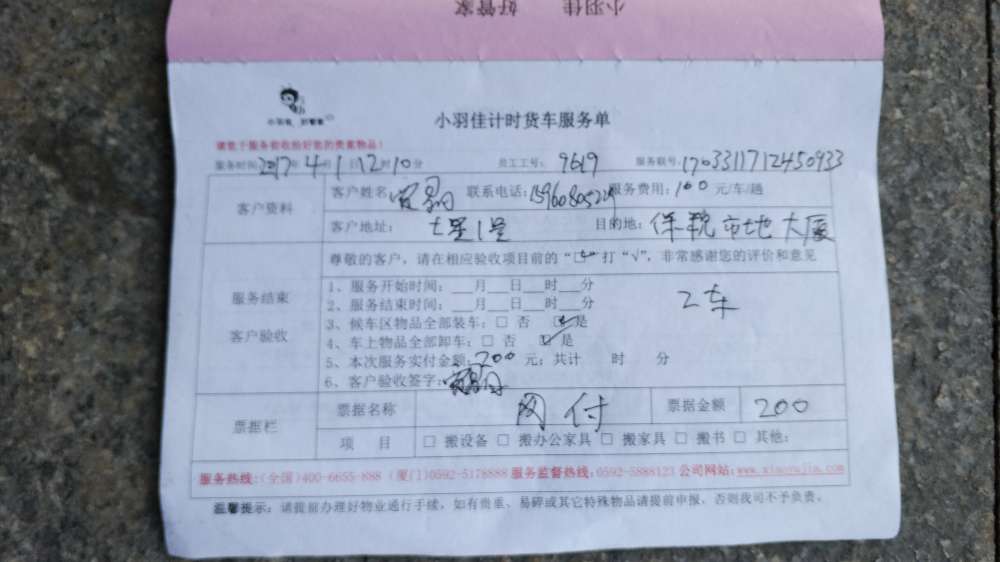 小羽佳 好管家
小羽佳 好管家
小羽佳计时货车服务单
请您于服务前收拾好您的贵重物品!
服务时间 2017年 4月1日12时10分 员工工号: 9619 服务联号: 1703311712450933
客户资料
客户姓名 联系电话: 服务费用: 100 元/车/趟
客户地址: 七星1里 目的地: 保税市地大厦
服务结束
客户验收
尊敬的客户, 请在相应验收项目前的“□”打“√”, 非常感谢您的评价和意见
1、服务开始时间: ___月___日___时___分
2、服务结束时间: ___月___日___时___分 2车
3、候车区物品全部装车: □ 否 ☑ 是
4、车上物品全部卸车: □ 否 ☑ 是
5、本次服务实付金额: 200 元; 共计 时 分
6、客户验收签字:
票据栏
票据名称 网付 票据金额 200
项 目 □ 搬设备 □ 搬办公家具 □ 搬家具 □ 搬书 □ 其他:
服务热线: (全国)400-6655-888 (厦门)0592-5178888 服务监督热线: 0592-5888123 公司网站: www.xiaoyujia.com
温馨提示: 请提前办理好物业通行手续, 如有贵重、易碎或其它特殊物品请提前申报, 否则我司不予负责。